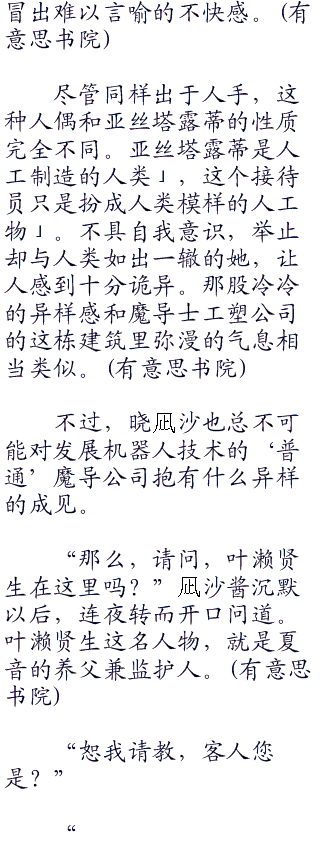 冒出难以言喻的不快感。（有
意思书院）
尽管同样出于人手，这
种人偶和亚丝塔露蒂的性质
完全不同。亚丝塔露蒂是人
工制造的人类」，这个接待
员只是扮成人类模样的人工
物」。不具自我意识，举止
却与人类如出一辙的她，让
人感到十分诡异。那股冷冷
的异样感和魔导士工塑公司
的这栋建筑里弥漫的气息相
当类似。（有意思书院）
不过，晓凪沙也总不可
能对发展机器人技术的‘普
通’魔导公司抱有什么异样
的成见。
“那么，请问，叶濑贤
生在这里吗？”凪沙酱沉默
以后，连夜转而开口问道。
叶濑贤生这名人物，就是夏
音的养父兼监护人。（有意思
书院）
“恕我请教，客人您
是？”
“